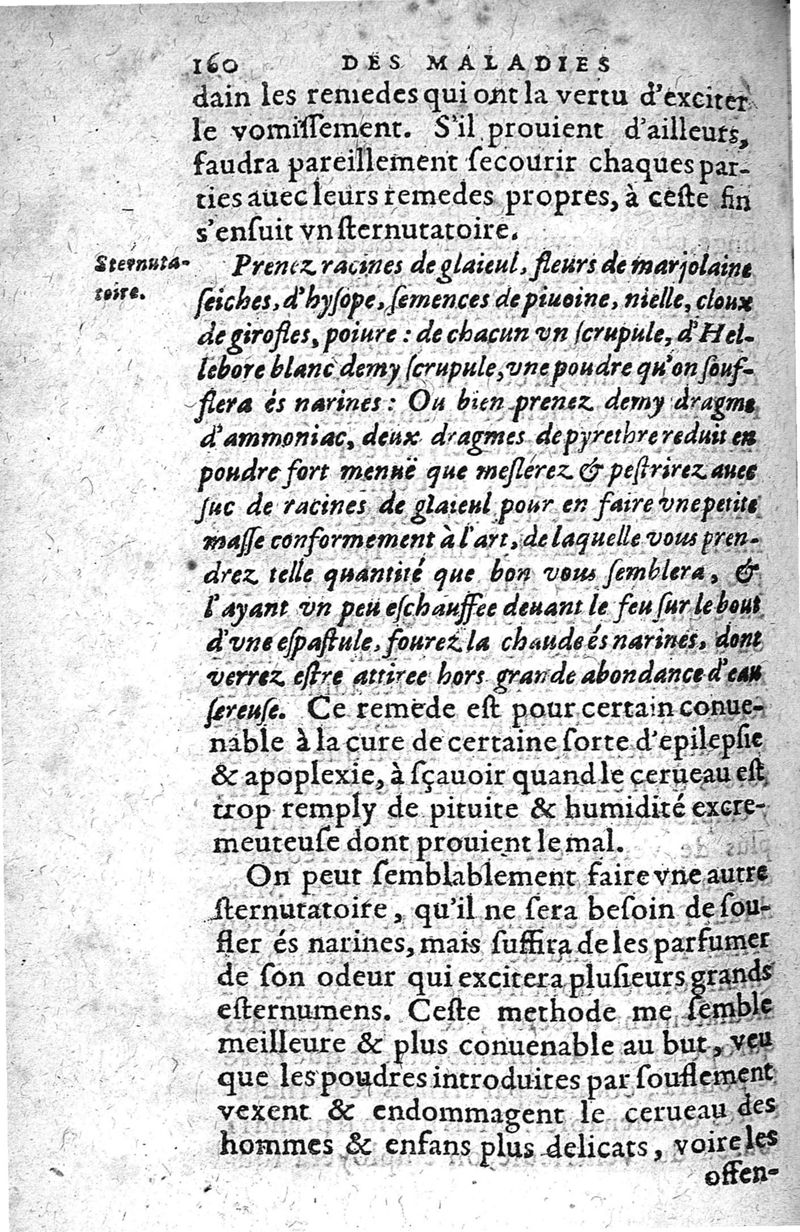 160 DES MALADIES
dain les remedes qui ont la vertu d'exciter
le vomiſſement. S'il prouient d'ailleurs,
faudra pareillement ſecourir chaques par-
ties auec leurs remedes propres, à ceſte fin
s'enſuit vn ſternutatoire.
Sternuta-
toire.
Prenez racines de glaieul, fleurs de marjolaine
ſeiches, d'hyſope, ſemences de piuoine, nielle, cloux
de girofles, poiure : de chacun vn ſcrupule, d'Hel-
lebore blanc demy ſcrupule, vne poudre qu'on ſouf-
flera és narines : Ou bien prenez demy dragme
d'ammoniac, deux dragmes de pyrethre reduit en
poudre fort menuë que meſlerez & peſtrirez auec
ſuc de racines de glaieul pour en faire vne petite
maſſe conformement à l'art, de laquelle vous pren-
drez telle quantité que bon vous ſemblera, &
l'ayant vn peu eſchauffee deuant le feu ſur le bout
d'vne eſpaſtule, fourez la chaude és narines, dont
verrez eſtre attiree hors grande abondance d'eau
ſereuſe. Ce remede eſt pour certain conue-
nable à la cure de certaine ſorte d'epilepſie
& apoplexie, à ſçauoir quand le cerueau eſt
trop remply de pituite & humidité excre-
meuteuſe dont prouient le mal.
On peut ſemblablement faire vne autre
ſternutatoire, qu'il ne ſera beſoin de ſou-
fler és narines, mais ſuffira de les parfumer
de ſon odeur qui excitera pluſieurs grands
eſternumens. Ceſte methode me ſemble
meilleure & plus conuenable au but, veu
que les poudres introduites par ſouflement
vexent & endommagent le cerueau des
hommes & enfans plus delicats, voire les
offen-